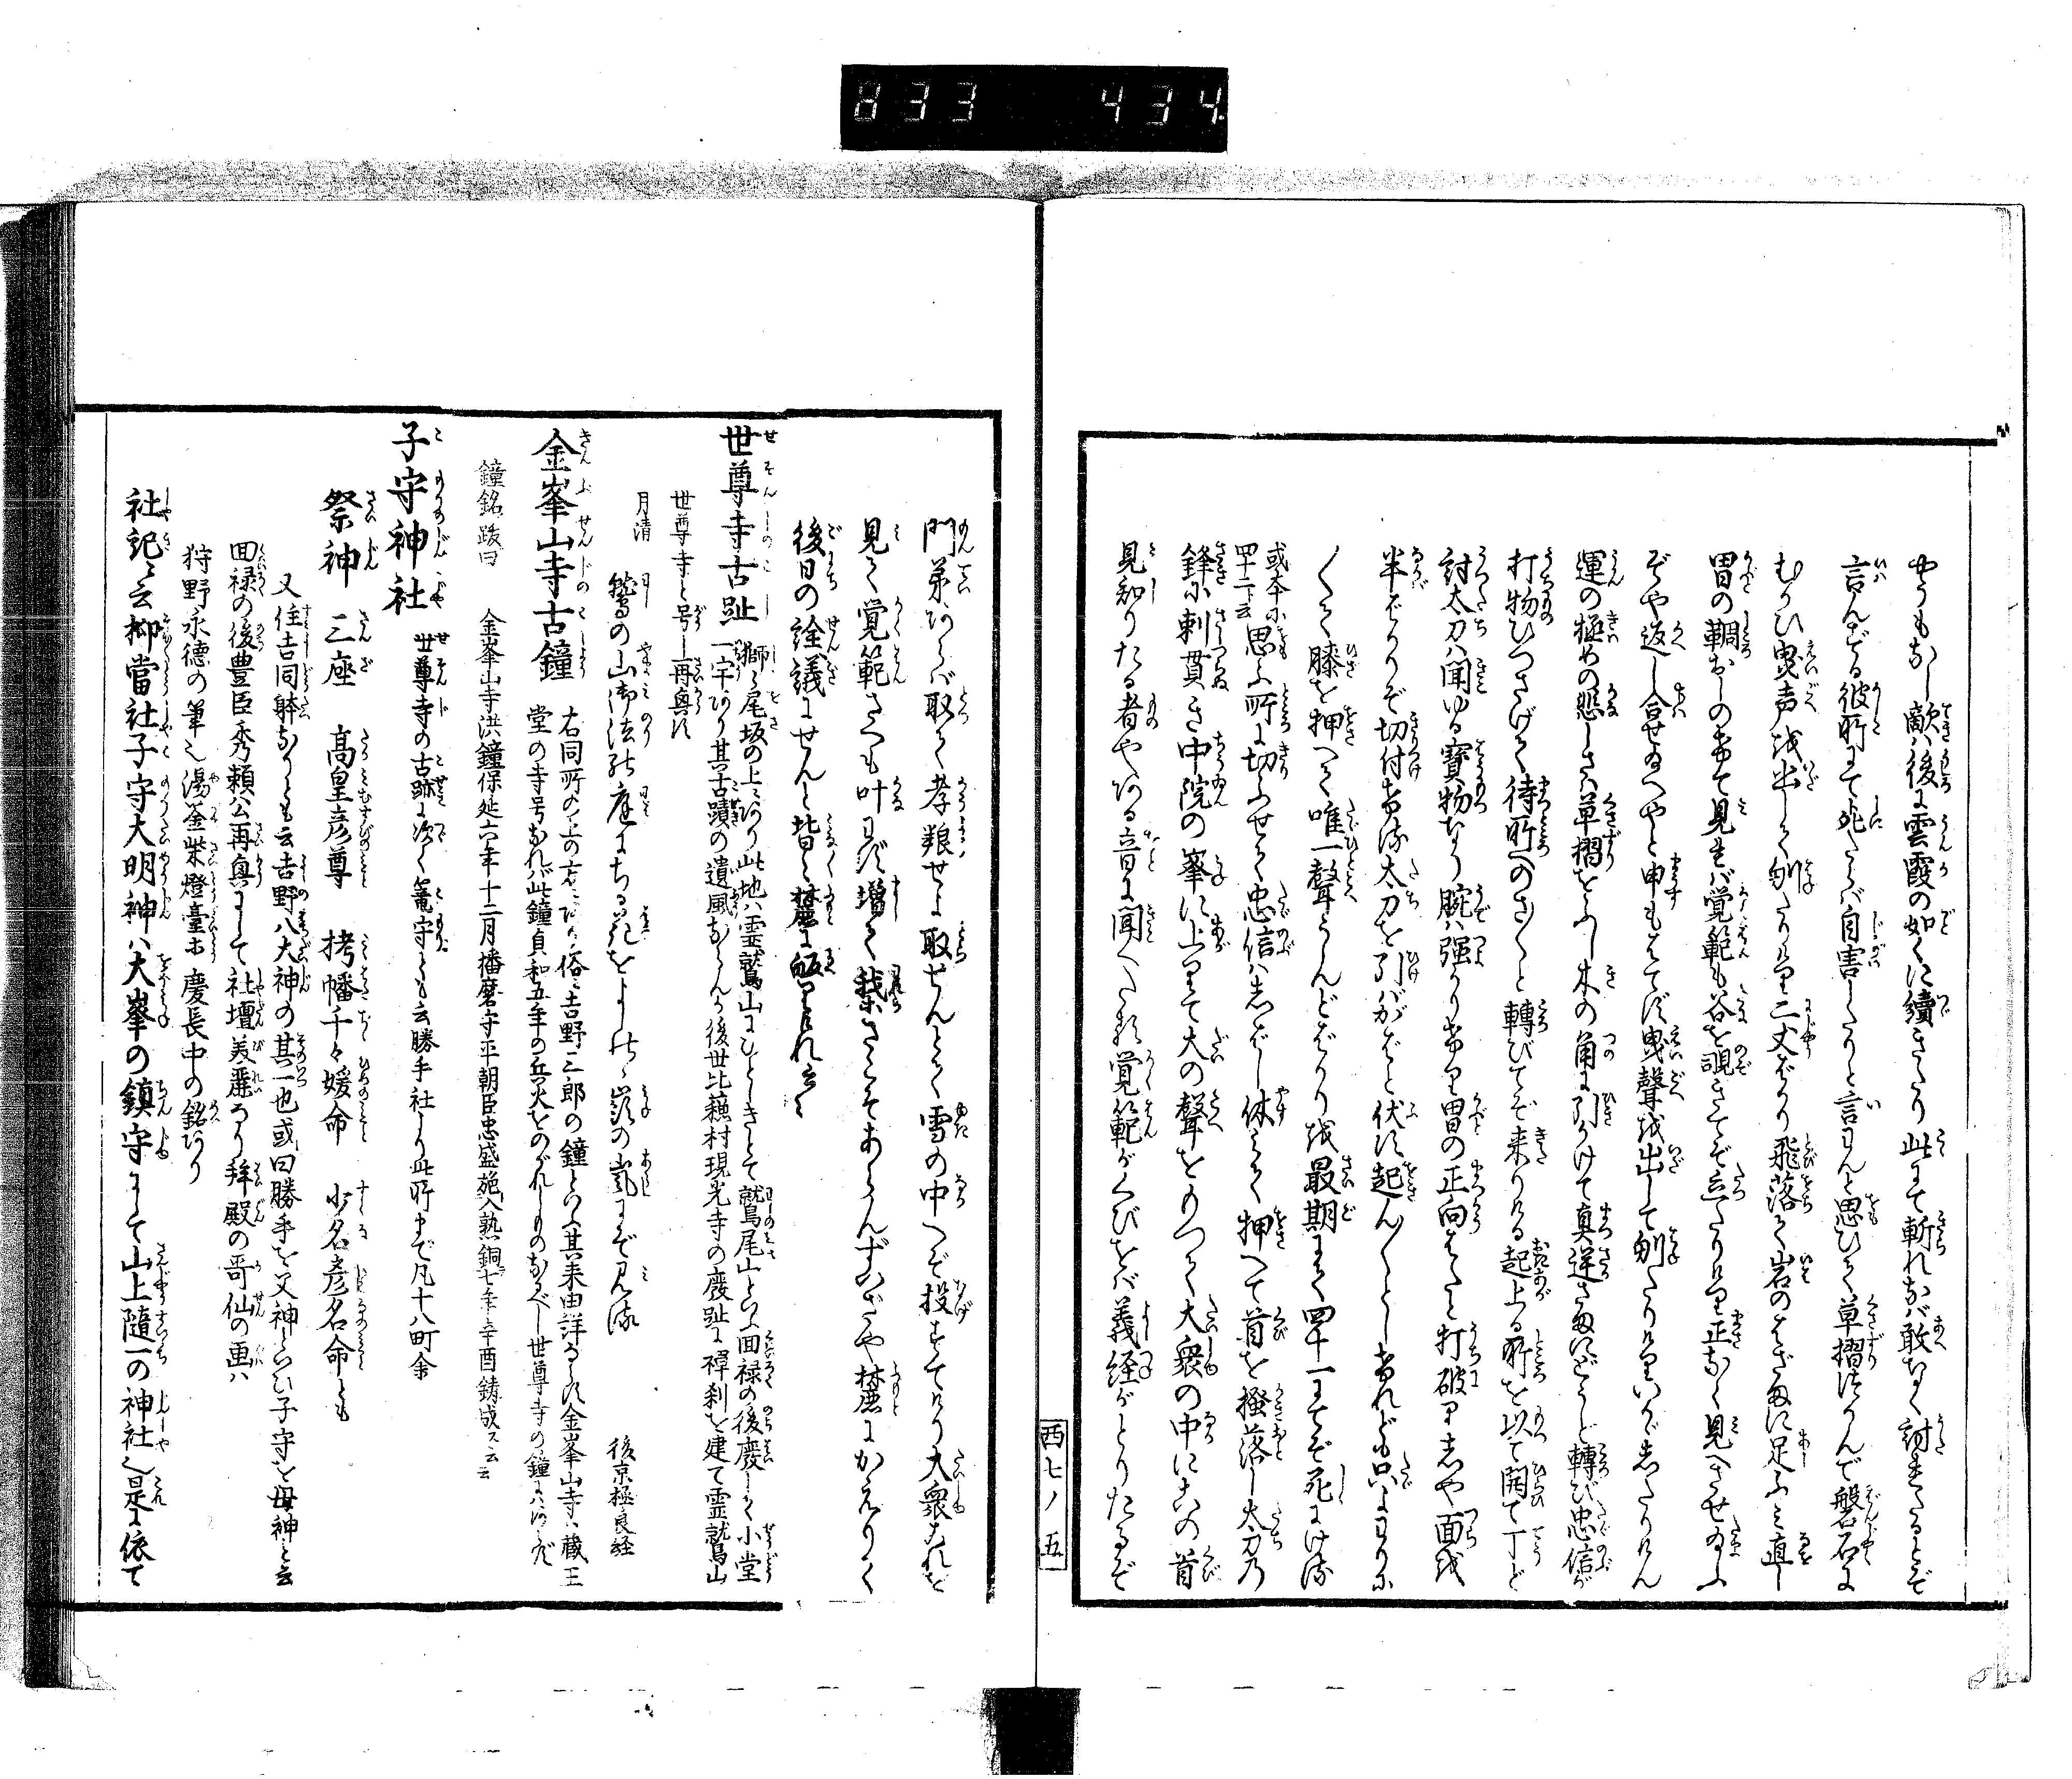 833 434
やうもなし敵は後に雲霞の如くに續きたり此にて斬れなば敢なく討たるとぞ
言んずる彼所にて死たらば自害したりと言れんと思ひて草摺つかんで磐石に
むかひ曳声を出して刎たりけり二丈ばかり飛落て岩のはざまに足ふみ直し
冑の錣おしのけて見れば覚範も谷を覗きてぞ立たりけり正なく見へさせ給ふ
ぞや返し合せ給へやと申もはてず曳聲を出して刎たりけりいかゞしたりけん
運の極めの悲しさは草摺をふし木の角に引かけて真逆さまにどうと轉び忠信が
打物ひつさげて待所へのさ〳〵と轉びてぞ来りける起上る所を以て開て丁ど
討太刀は聞ゆる寳物なり腕は强かりけり冑の正向はたと打破りしや面を
半ばかりぞ切付ける太刀を引ばがはと伏す起ん〳〵としけれども只よわりに
よわくて膝を押へて唯一聲うんどばかりを最期にて四十一にてぞ死にける
或本に四十二ト云
思ふ所に切ふせて忠信はしばし休らひて押へて首を掻落し太刀の
鋒に刺貫き中院の峯に上りて大の聲をもつて大衆の中にこの首
見知りたる者やある音に聞へたる覚範がくびをば義経がとりたるぞ
西七ノ五
門弟あらば取て孝粮せよ取せんとて雪の中へぞ投すてけり大衆これを
見て覚範さへも叶はず増て我等さこそあらんずいざや麓にかえりて
後日の詮議にせんと皆々麓に皈りけれ云々
世尊寺古趾 獅々尾坂の上にあり此地は霊鷲山にひとしきとて鷲尾山といふ回禄の後廢して小堂
一宇あり其古蹟の遺風ならんか後世比蘓村現光寺の廢趾に禅刹を建て霊鷲山
世尊寺と号し再興す
月清 鷲の山御法の庭にちる花をよしのゝ嶺の嵐にぞ見る 後京極良経
金峯山寺古鐘 右同所の上の方にあり俗に吉野三郎の鐘といふ其来由詳ならず金峯山寺は蔵王
堂の寺号なれば此鐘貞和五年の兵火をのがれしものなるべし世尊寺の鐘にはあらず
鐘銘跋曰 金峯山寺洪鐘保延六年十二月播磨守平朝臣忠盛施入熟銅七年辛酉鋳成ス云云
子守神社 世尊寺の古跡に次く篭守とも云勝手社より此所まで凡十八町余
祭神三座 高皇彦尊 栲幡千々媛命 少名彦名命とも
又住吉同躰なりとも云吉野八大神の其一也或曰勝手を父神といひ子守を母神と云
回禄の後豊臣秀頼公再興にして社壇美麗なり拜殿の哥仙の画は
狩野永德の筆也湯釜柴燈臺に慶長中の銘あり
社記云抑當社子守大明神は大峯の鎮守にして山上隨一の神社也是に依て